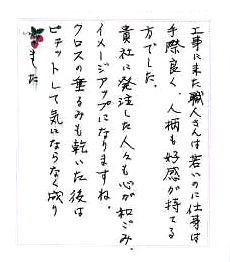 工事に来た職人さんは若いのに仕事は
手際良く、人柄も好感が持てる
方でした。
貴社に発注した人々も心が和ごみ、
イメージアップになりますね。
クロスの垂るみも乾いた後は
ピチットして気にならなく成り
ました